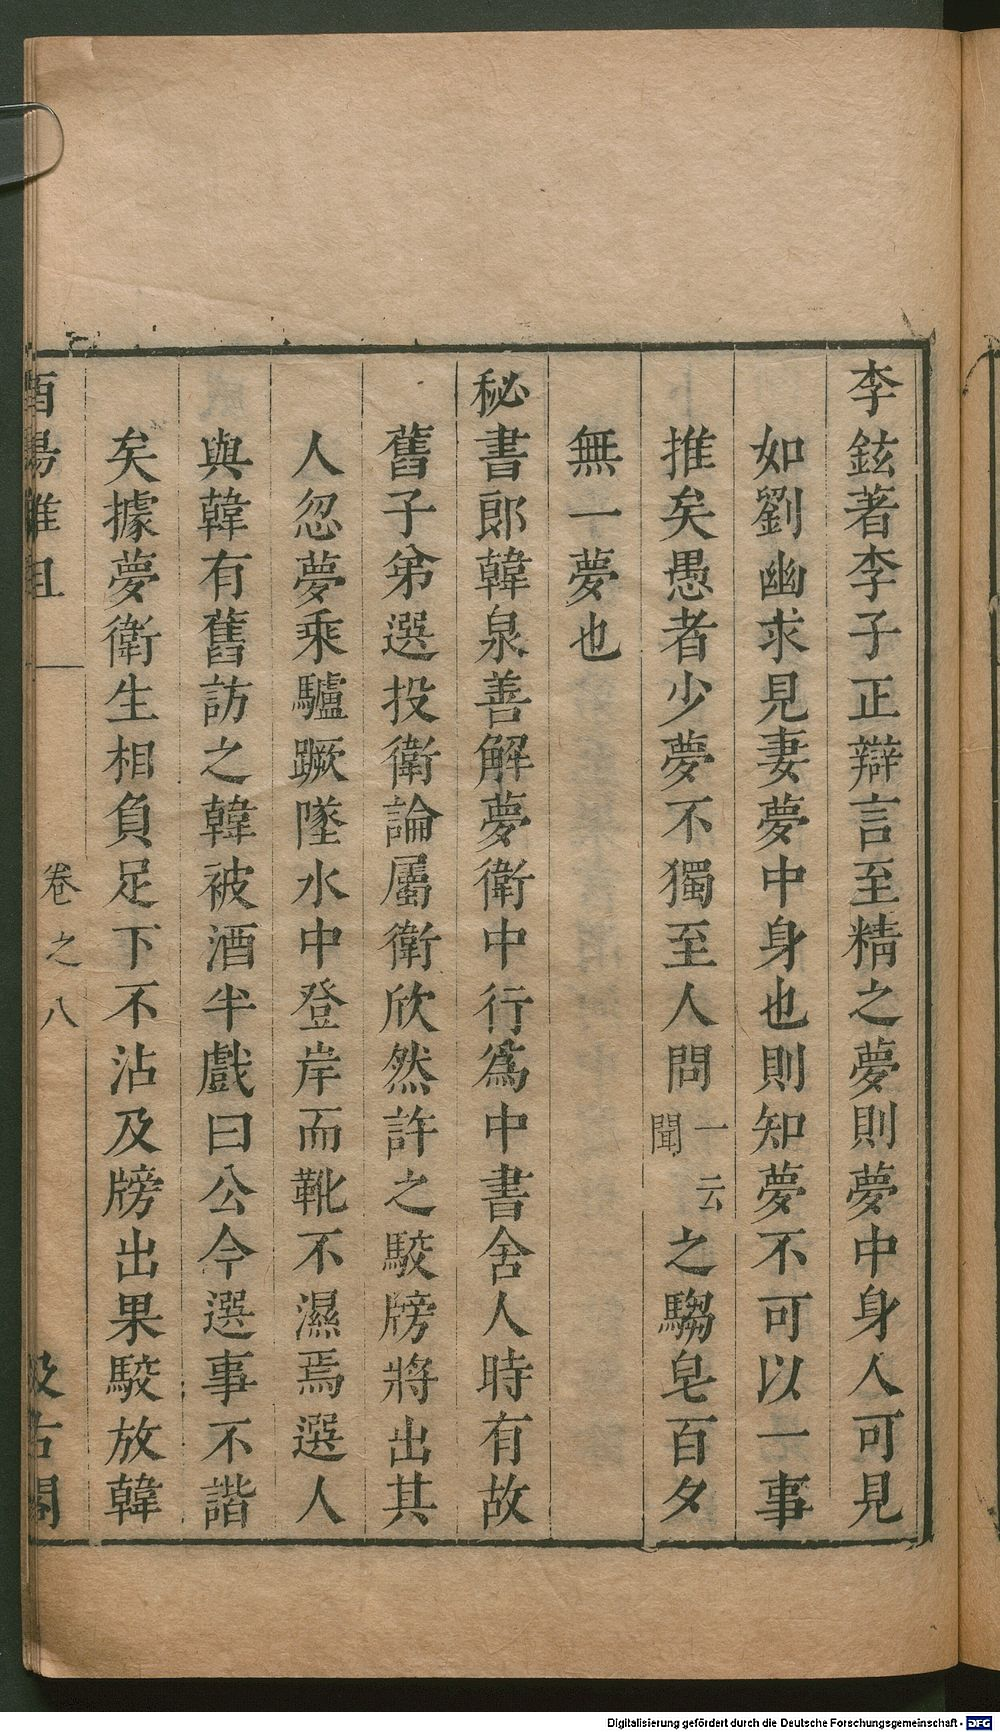 李鉉著李子正辯言至精之夢則夢中身人可見
如劉幽求見妻夢中身也則知夢不可以一事
推矣愚者少夢不獨至人問一云聞之騶皂百夕
無一夢也
秘書郎韓泉善解夢衛中行爲中書舍人時有故
舊子弟選投衛論屬衛欣然許之駮牓將出其
人忽夢乘驢蹶墜水中登岸而靴不濕焉選人
與韓有舊訪之韓被酒半戲曰公今選事不諧
矣據夢衛生相負足下不沾及牓出果駮放韓
酉陽雜俎 卷之八 汲古閣
Digitalisierung gefördert durch die Deutsche Forschungsgemeinschaft - DFG